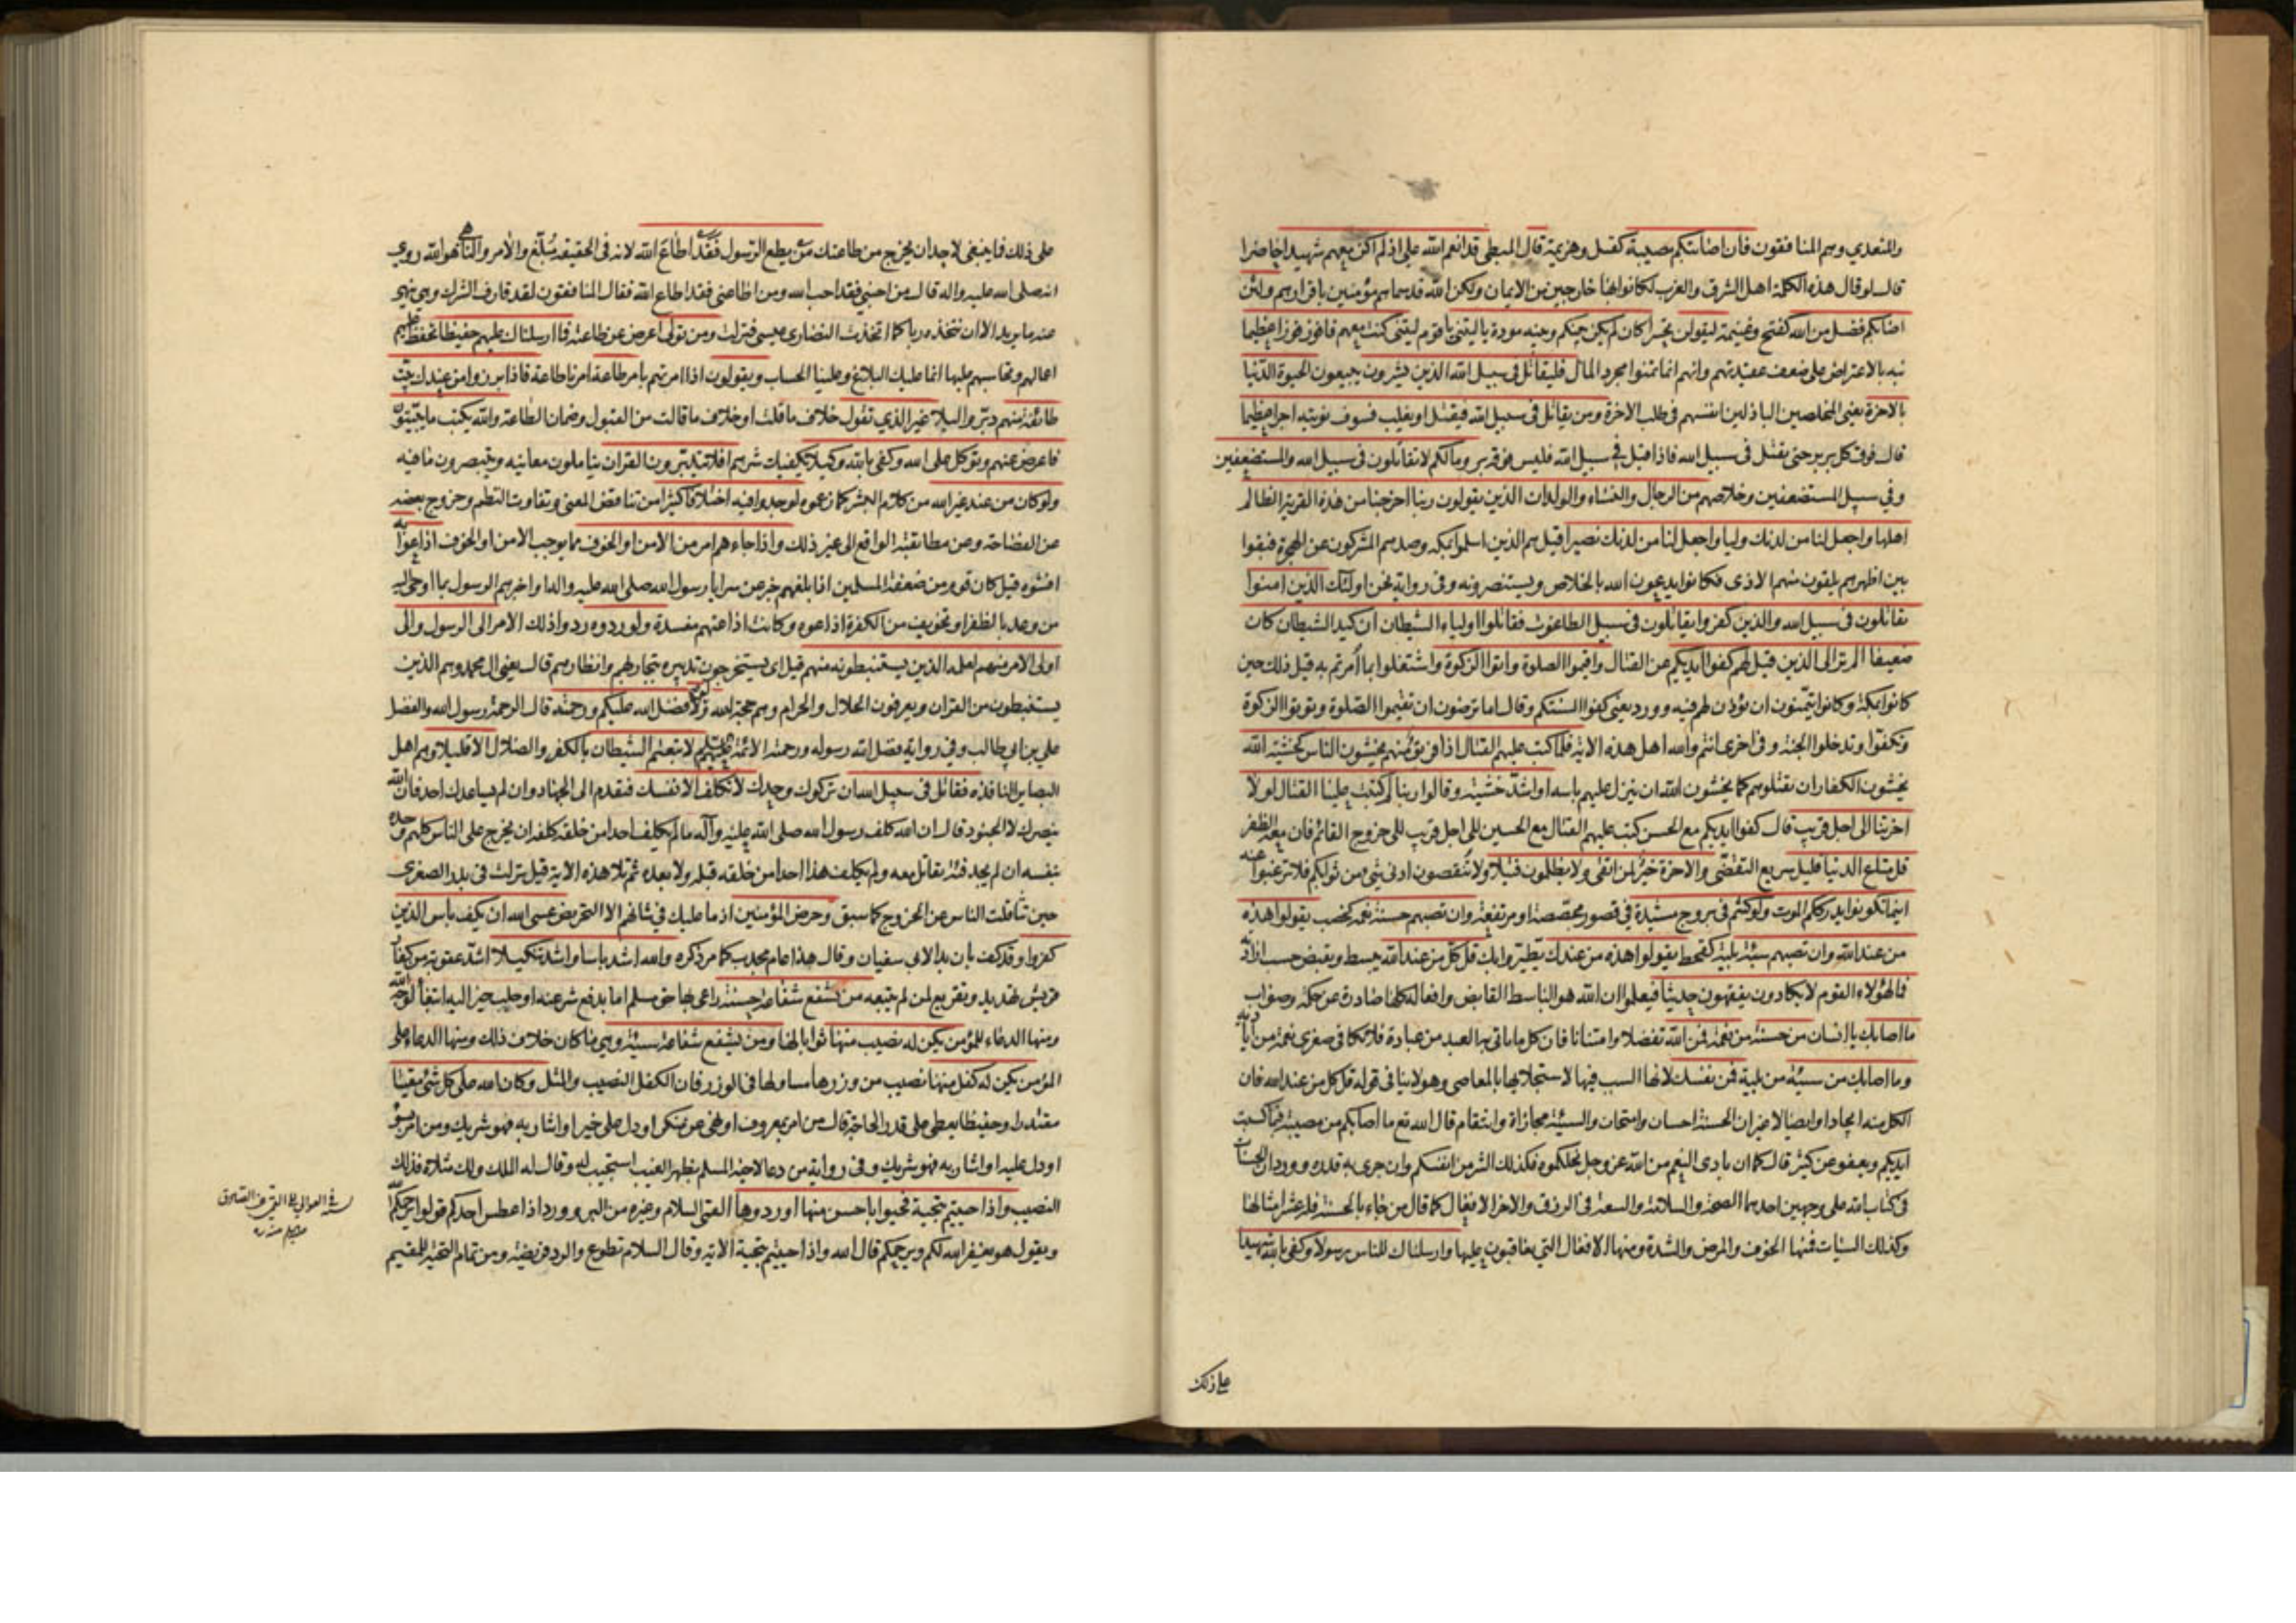 والمتعدي وهم المنافقون فان اصابتكم مصيبة كقتل وهزيمة قال المبطي قد انعم الله علي اذ لم اكن معهم شهيدا حاضرا
قال لو قال هذه الكلمة اهل الشرق والغرب لكانوا بها خارجين من الايمان ولكن الله قد سماهم مؤمنين باقرارهم ولئن
اصابكم فضل من الله كفتح وغنيمة ليقولن تحسرا كان لم يكن بينكم وبينه مودة يا ليتني يا قوم ليتني كنت معهم فافوز فوزا عظيما
نبه بالاعتراض على ضعف عقيدتهم وانهم انما تمنوا مجرد المال فليقاتل في سبيل الله الذين يشرون يبيعون الحيوة الدنيا
بالاخرة يعني المخلصين الباذلين انفسهم في طلب الاخرة ومن يقاتل في سبيل الله فيقتل او يغلب فسوف نؤتيه اجرا عظيما
قال فوق كل بر بر حتى يقتل في سبيل الله فاذا قتل في سبيل الله فليس فوقه بر وما لكم لا تقاتلون في سبيل الله والمستضعفين
وفي سبيل المستضعفين وخلاصهم من الرجال والنساء والولدان الذين يقولون ربنا اخرجنا من هذه القرية الظالم
اهلها واجعل لنا من لدنك وليا واجعل لنا من لدنك نصيرا قيل هم الذين اسلموا بمكة وصدهم المشركون عن الهجرة فبقوا
بين اظهرهم يلقون منهم الاذى فكانوا يدعون الله بالخلاص ويستنصرونه وفي رواية نحن اولئك الذين امنوا
يقاتلون في سبيل الله والذين كفروا يقاتلون في سبيل الطاغوت فقاتلوا اولياء الشيطان ان كيد الشيطان كان
ضعيفا الم تر الى الذين قيل لهم كفوا ايديكم عن القتال واقيموا الصلوة واتوا الزكوة واشتغلوا بما امرتم به قيل ذلك حين
كانوا بمكة وكانوا يتمنون ان يؤذن لهم فيه وورد يعني كفوا السنتكم وقال اما ترضون ان تقيموا الصلوة وتؤتوا الزكوة
وتكفوا وتدخلوا الجنة وفي اخرى انتم والله اهل هذه الاية فلما كتب عليهم القتال اذا فريق منهم يخشون الناس كخشية الله
يخشون الكفار ان يقتلوهم كما يخشون الله ان ينزل عليهم باسه او اشد خشية وقالوا ربنا لم كتبت علينا القتال لولا
اخرتنا الى اجل قريب قال كفوا ايديكم مع الحسن كتب عليهم القتال مع الحسين الى اجل قريب الى خروج القائم فان معه الظفر
قل متاع الدنيا قليل سريع التقضي والاخرة خير لمن اتقى ولا يظلمون فتيلا ولا تنقصون ادنى شيء من ثوابكم فلا ترغبوا عنه
اينما تكونوا يدرككم الموت ولو كنتم في بروج مشيدة في قصور مجصصة او مرتفعة وان تصبهم حسنة نعمة كخصب يقولوا هذه
من عند الله وان تصبهم سيئة بلية كقحط يقولوا هذه من عندك يطيروا بك قل كل من عند الله يبسط ويقبض حسب ارادته
فما لهؤلاء القوم لا يكادون يفقهون حديثا فيعلموا ان الله هو الباسط القابض وافعاله كلها صادرة عن حكمة وصواب
ما اصابك يا انسان من حسنة من نعمة فمن الله تفضلا وامتنانا فان كل ما ياتي به العبد من عبادة فلا تكافي صغرى نعمة من اياديه
وما اصابك من سيئة من بلية فمن نفسك لانها السبب فيها لاستجلابها بالمعاصي وهو لا ينافي قوله قل كل من عند الله فان
الكل منه ايجادا وايصالا غير ان الحسنة احسان وامتحان والسيئة مجازاة وانتقام قال الله تع ما اصابكم من مصيبة فبما كسبت
ايديكم ويعفو عن كثير قال كما ان بادي النعم من الله عز وجل نحلكموه فكذلك الشر من انفسكم وان جرى به قدره وورد ان الحسنات
في كتاب الله على وجهين احدهما الصحة والسلامة والسعة في الرزق والاخر الافعال كما قال من جاء بالحسنة فله عشر امثالها
وكذلك السيئات فمنها الخوف والمرض والشدة ومنها الافعال التي يعاقبون عليها وارسلناك للناس رسولا وكفى بالله شهيدا
على ذلك
على ذلك فما ينبغي لاحد ان يخرج من طاعتك من يطع الرسول فقد اطاع الله لانه في الحقيقة مبلغ والامر والناهي هو الله روي
انه صلى الله عليه واله قال من احبني فقد احب الله ومن اطاعني فقد اطاع الله فقال المنافقون لقد قارف الشرك وهي نهي
عنه ما يريد الا ان نتخذه ربا كما اتخذت النصارى عيسى فنزلت ومن تولى اعرض عن طاعته فما ارسلناك عليهم حفيظا تحفظ عليهم
اعمالهم وتحاسبهم عليها انما عليك البلاغ وعلينا الحساب ويقولون اذا امرتهم بامر طاعة امرنا طاعة فاذا برزوا من عندك بيت
طائفة منهم دبروا ليلا غير الذي تقول خلاف ما قلت او خلاف ما قالت من القبول وضمان الطاعة والله يكتب ما يبيتون
فاعرض عنهم وتوكل على الله وكفى بالله وكيلا يكفيك شرهم افلا يتدبرون القران يتاملون معانيه ويتبصرون ما فيه
ولو كان من عند غير الله من كلام البشر كما زعموه لوجدوا فيه اختلافا كثيرا من تناقض المعنى وتفاوت النظم وخروج بعضه
عن الفصاحة وعن مطابقة الواقع الى غير ذلك واذا جاءهم امر من الامن او الخوف مما يوجب الامن او الخوف اذاعوا به
افشوه قيل كان قوم من ضعفة المسلمين اذا بلغهم خبر عن سرايا رسول الله صلى الله عليه واله او اخبرهم الرسول بما اوحي اليه
من وعد بالظفر او تخويف من الكفرة اذاعوه وكانت اذاعتهم مفسدة ولو ردوه ردوا ذلك الامر الى الرسول والى
اولي الامر منهم لعلمه الذين يستنبطونه منهم قيل اي يستخرجون تدبيره بتجاربهم وانظارهم قال يعني ال محمد وهم الذين
يستنبطون من القران ويعرفون الحلال والحرام وهم حجة الله ولولا فضل الله عليكم ورحمته قال الرحمة رسول الله والفضل
علي بن ابي طالب وفي رواية فضل الله رسوله ورحمته الائمة لاتبعتم الشيطان بالكفر والضلال الا قليلا وهم اهل
البصاير النافذة فقاتل في سبيل الله ان تركوك وحدك لا تكلف الا نفسك فتقدم الى الجهاد وان لم يساعدك احد فان الله
ينصرك لا الجنود قال ان الله كلف رسول الله صلى الله عليه وآله ما لم يكلف احدا من خلقه كلفه ان يخرج على الناس كلهم وحده
بنفسه ان لم يجد فئة يقاتل معه ولم يكلف هذا احدا من خلقه قبله ولا بعده ثم تلا هذه الاية قيل نزلت في بدر الصغرى
حين تثاقلت الناس عن الخروج كما سبق وحرض المؤمنين اذ ما عليك في شانهم الا التحريض عسى الله ان يكف باس الذين
كفروا وقد كف بان بدا لابي سفيان وقال هذا عام مجدب كما مر ذكره والله اشد باسا واشد تنكيلا اشد عقوبة من كفار
قريش تهديد وتقريع لمن لم يتبعه من يشفع شفاعة حسنة راعى بها حق مسلم اما بدفع شر عنه او جلب خير اليه ابتغاء لوجه الله
ومنها الدعاء للمؤمن يكن له نصيب منها ثوابا لها ومن يشفع شفاعة سيئة وهي ما كان خلاف ذلك ومنها الدعاء على
المؤمن يكن له كفل منها نصيب من وزرها مساو لها في الوزر فان الكفل النصيب والمثل وكان الله على كل شيء مقيتا
مقتدرا وحفيظا يعطي على قدر الحاجة قال من امر بمعروف او نهى عن منكر او دل على خير او اشار به فهو شريك ومن امر بسوء
او دل عليه او اشار به فهو شريك وفي رواية من دعا لاخيه المسلم بظهر الغيب استجيب له وقال له الملك ولك مثلاه فذلك
النصيب واذا حييتم بتحية فحيوا باحسن منها او ردوها القمي السلام وغيره من البر وورد اذا عطس احدكم قولوا يرحمكم
ويقول هو يغفر الله لكم ويرحمكم قال الله واذا حييتم بتحية الاية وقال السلام تطوع والرد فريضة ومن تمام التحية للمقيم
القمي عن الصادق
منه ره